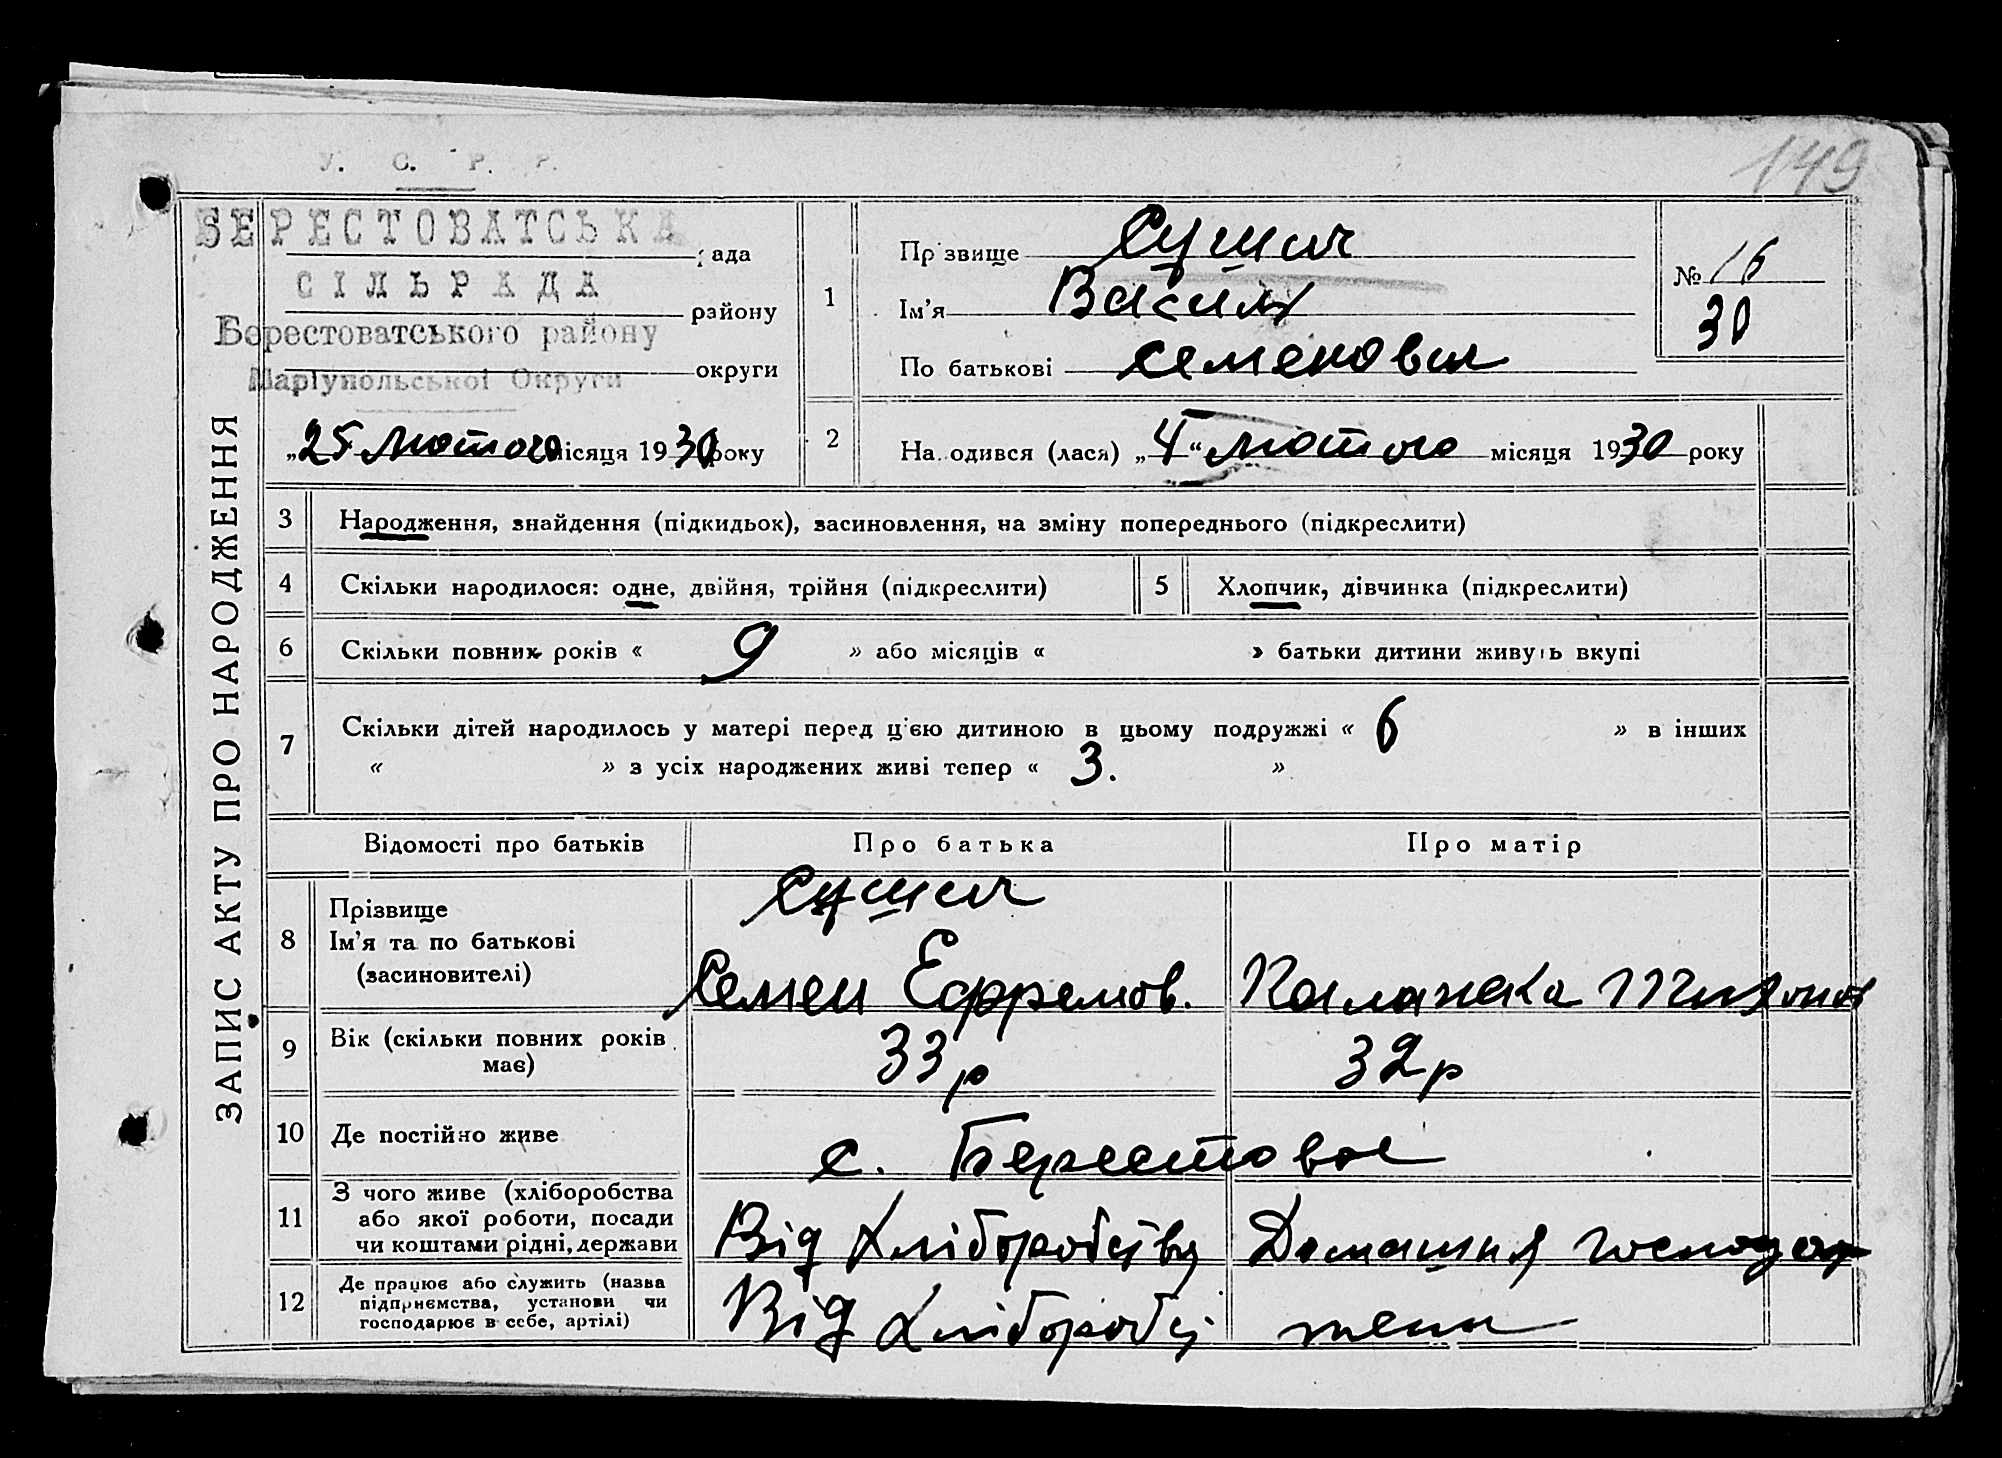 149
У. С. Р. Р.
БЕРЕСТОВАТСЬКА
рада
СІЛЬРАДА
району
Берестоватського району
округи
Маріупольської Округи
„25 Лютого місяця 1930 року
ЗАПИС АКТУ ПРО НАРОДЖЕННЯ
1
Прізвище Сушич
Ім'я Василь
По батькові Семенович
№ 16
30
2 Народився (лася) „4“ лютого місяця 1930 року
3 Народження, знайдення (підкидьок), засиновлення, на зміну попереднього (підкреслити)
4 Скільки народилося: одне, двійня, трійня (підкреслити) 5 Хлопчик, дівчинка (підкреслити)
6 Скільки повних років « 9 » або місяців « » батьки дитини живуть вкупі
7 Скільки дітей народилось у матері перед ц'єю дитиною в цьому подружжі « 6 » в інших
« » з усіх народжених живі тепер « 3. »
Відомості про батьків Про батька Про матір
8 Прізвище Сушич
Ім'я та по батькові
(засиновителі) Семен Ефремов.
9 Вік (скільки повних років має) 33 р 32 р
10 Де постійно живе с. Берестовое
11 З чого живе (хліборобства
або якої роботи, посади
чи коштами рідні, держави Від Хліборобства Домашня господар
12 Де працює або служить (назва
підприємства, установи чи
господарює в себе, артілі) Від Хліборобс